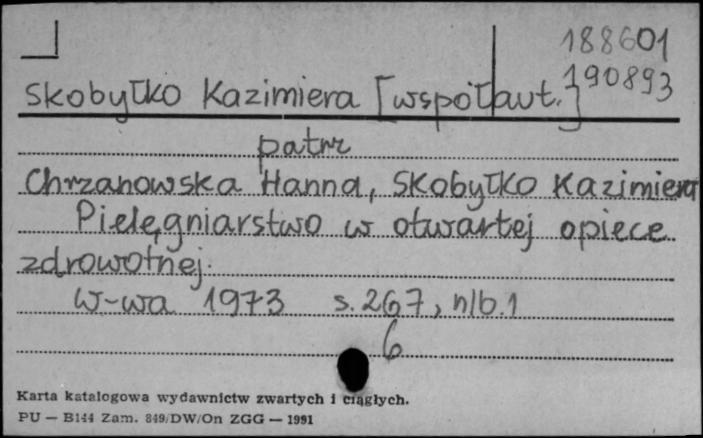 188601
190893
Skobyłko Kazimiera [współaut.]
patrz
Chrzanowska Hanna, Skobyłko Kazimiera
Pielęgniarstwo w otwartej opiece
zdrowotnej.
W-wa 1973 s. 267, nlb. 1
6
Karta katalogowa wydawnictw zwartych i ciągłych.
PU — B144 Zam. 849/DW/On ZGG — 1991